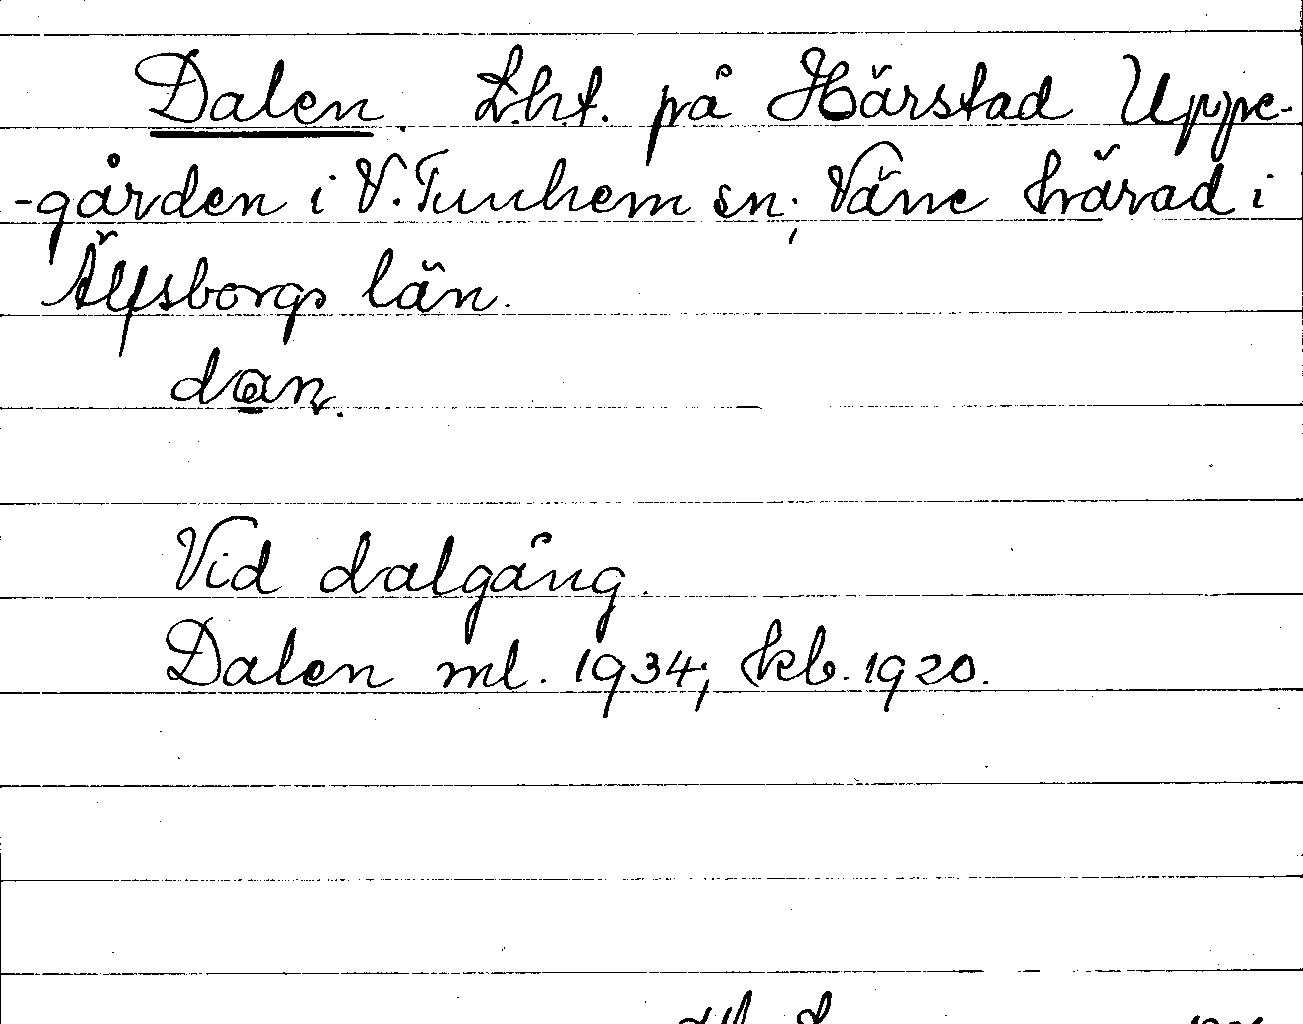 Dalen. Lht. på Härstad Uppe-
-gården i V. Tunhem sn; Väne härad i
Älfsborgs län.
dan.
Vid dalgång.
Dalen ml. 1934; kb. 1920.